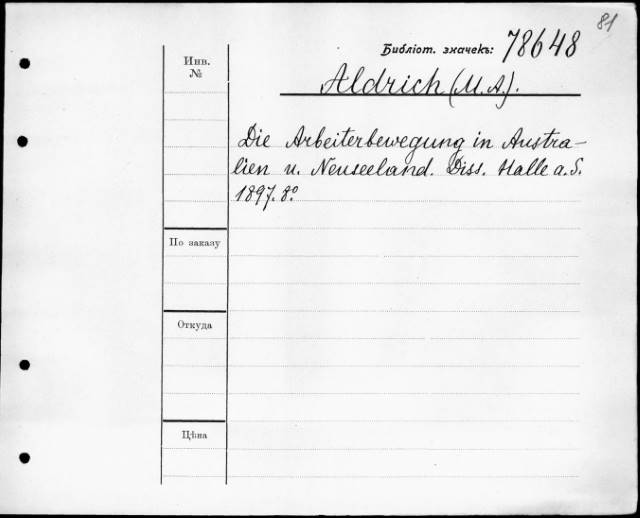 81
Библіот. значекъ: 78648
Инв.
№
Aldrich (M. A.).
Die Arbeiterbewegung in Austra-
lien u. Neuseeland. Diss. Halle a. S.
1897. 8º
По заказу
Откуда
Цѣна